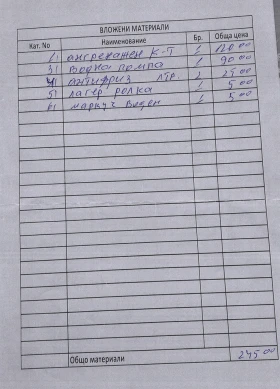 ВЛОЖЕНИ МАТЕРИАЛИ
Кат. No Наименование Бр. Обща цена
1/ ангренажен к-т 1 120 00
2/ водна помпа 1 90 00
4/ антифриз лтр. 2 25 00
5/ лагер ролка 1 5 00
6/ маркуч воден 1 5 00
Общо материали 245 00